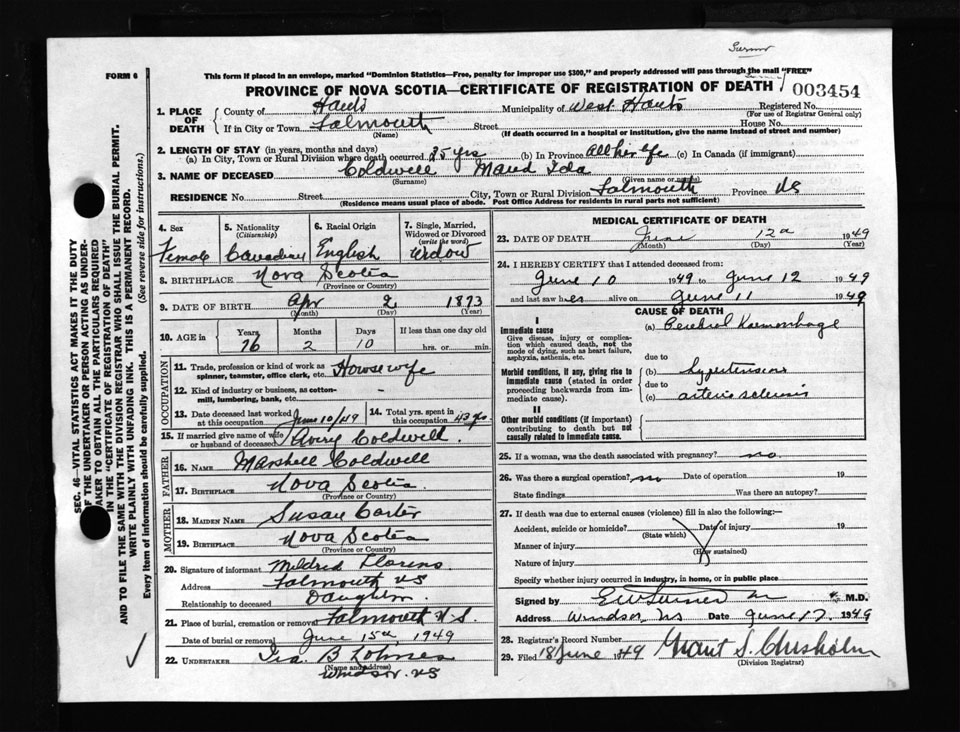 FORM 6
This form if placed in an envelope, marked "Dominion Statistics—Free, penalty for improper use $300," and properly addressed will pass through the mail "FREE"
PROVINCE OF NOVA SCOTIA—CERTIFICATE OF REGISTRATION OF DEATH
003454
1. PLACE OF DEATH
County of Hants Municipality of West Hants Registered No.
(For use of Registrar General only)
If in City or Town Falmouth Street House No.
(Name) (If death occurred in a hospital or institution, give the name instead of street and number)
2. LENGTH OF STAY (in years, months and days)
(a) In City, Town or Rural Division where death occurred 25 yrs (b) In Province All her life (c) In Canada (if immigrant)
3. NAME OF DECEASED Coldwell Maud Ida
(Surname) (Given name or names)
RESIDENCE No. Street City, Town or Rural Division Falmouth Province NS
(Residence means usual place of abode. Post Office Address for residents in rural parts not sufficient)
4. Sex Female
5. Nationality (Citizenship) Canadian
6. Racial Origin English
7. Single, Married, Widowed or Divorced (write the word) Widow
8. BIRTHPLACE Nova Scotia
(Province or Country)
9. DATE OF BIRTH Apr 2 1873
(Month) (Day) (Year)
10. AGE in Years 76 Months 2 Days 10 If less than one day old hrs. or min.
OCCUPATION
11. Trade, profession or kind of work as spinner, teamster, office clerk, etc. Housewife
12. Kind of industry or business, as cotton-mill, lumbering, bank, etc. -
13. Date deceased last worked at this occupation June 10/49
14. Total yrs. spent in this occupation 43 yrs
15. If married give name of wife or husband of deceased Avery Coldwell.
FATHER
16. NAME Marshell Coldwell
17. BIRTHPLACE Nova Scotia
(Province or Country)
MOTHER
18. MAIDEN NAME Susan Carter
19. BIRTHPLACE Nova Scotia
(Province or Country)
20. Signature of informant Mildred
Address Falmouth NS
Relationship to deceased Daughter
21. Place of burial, cremation or removal Falmouth N.S.
Date of burial or removal June 15th 1949
22. UNDERTAKER Ira. B
(Name and address)
Windsor. NS
MEDICAL CERTIFICATE OF DEATH
23. DATE OF DEATH June 12 1949
(Month) (Day) (Year)
24. I HEREBY CERTIFY that I attended deceased from:
June 10 1949 to June 12 1949
and last saw her alive on June 11 1949
CAUSE OF DEATH
I
Immediate cause
Give disease, injury or complication which caused death, not the mode of dying, such as heart failure, asphyxia, asthenia, etc.
(a) Cerebral Haemorrhage
due to
Morbid conditions, if any, giving rise to immediate cause (stated in order proceeding backwards from immediate cause).
(b) hypertension
due to
(c) arterio sclerosis
II
Other morbid conditions (if important) contributing to death but not causally related to immediate cause.
25. If a woman, was the death associated with pregnancy? no.
26. Was there a surgical operation? no Date of operation 19
State findings Was there an autopsy?
27. If death was due to external causes (violence) fill in also the following:—
Accident, suicide or homicide? Date of injury 19
(State which)
Manner of injury
(How sustained)
Nature of injury
Specify whether injury occurred in industry, in home, or in public place
Signed by M.D.
Address Windsor, NS Date June 17 1949
28. Registrar's Record Number
29. Filed 18 June 1949 Grant S. Chisholm
(Division Registrar)
SEC. 46—VITAL STATISTICS ACT MAKES IT THE DUTY
OF THE UNDERTAKER OR PERSON ACTING AS UNDER-
TAKER TO OBTAIN ALL THE PARTICULARS REQUIRED
IN THE "CERTIFICATE OF REGISTRATION OF DEATH"
AND TO FILE THE SAME WITH THE DIVISION REGISTRAR WHO SHALL ISSUE THE BURIAL PERMIT.
WRITE PLAINLY WITH UNFADING INK. THIS IS A PERMANENT RECORD.
Every item of information should be carefully supplied. (See reverse side for instructions.)